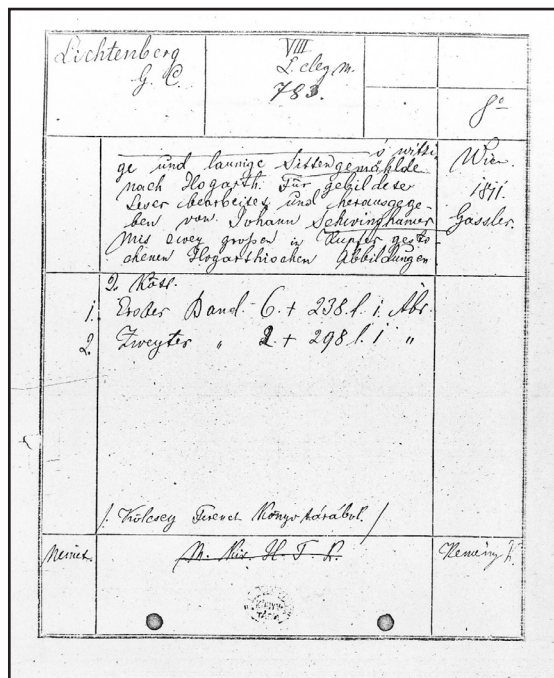 Lichtenberg
G. C.
VIII
L. eleg m.
783.
8°
s witzi-
ge und launige Sittengemählde
nach Hogarth. Für gebildete
Leser bearbeitet und herausgege
ben von Johann Schwinghamer
Mit zwey großen in Kupfer gesto
chenen Hogarthischen Abbildungen
Wien
1811.
Gassler.
2. Köt.
1. Erster Band. 6. + 238. l. 1. Ábr.
2. Zweyter " 2. + 298 l. 1 "
/. Kölcsey Ferenc Könyvtárából. /
Német.
M. H. F. L.
Kemény